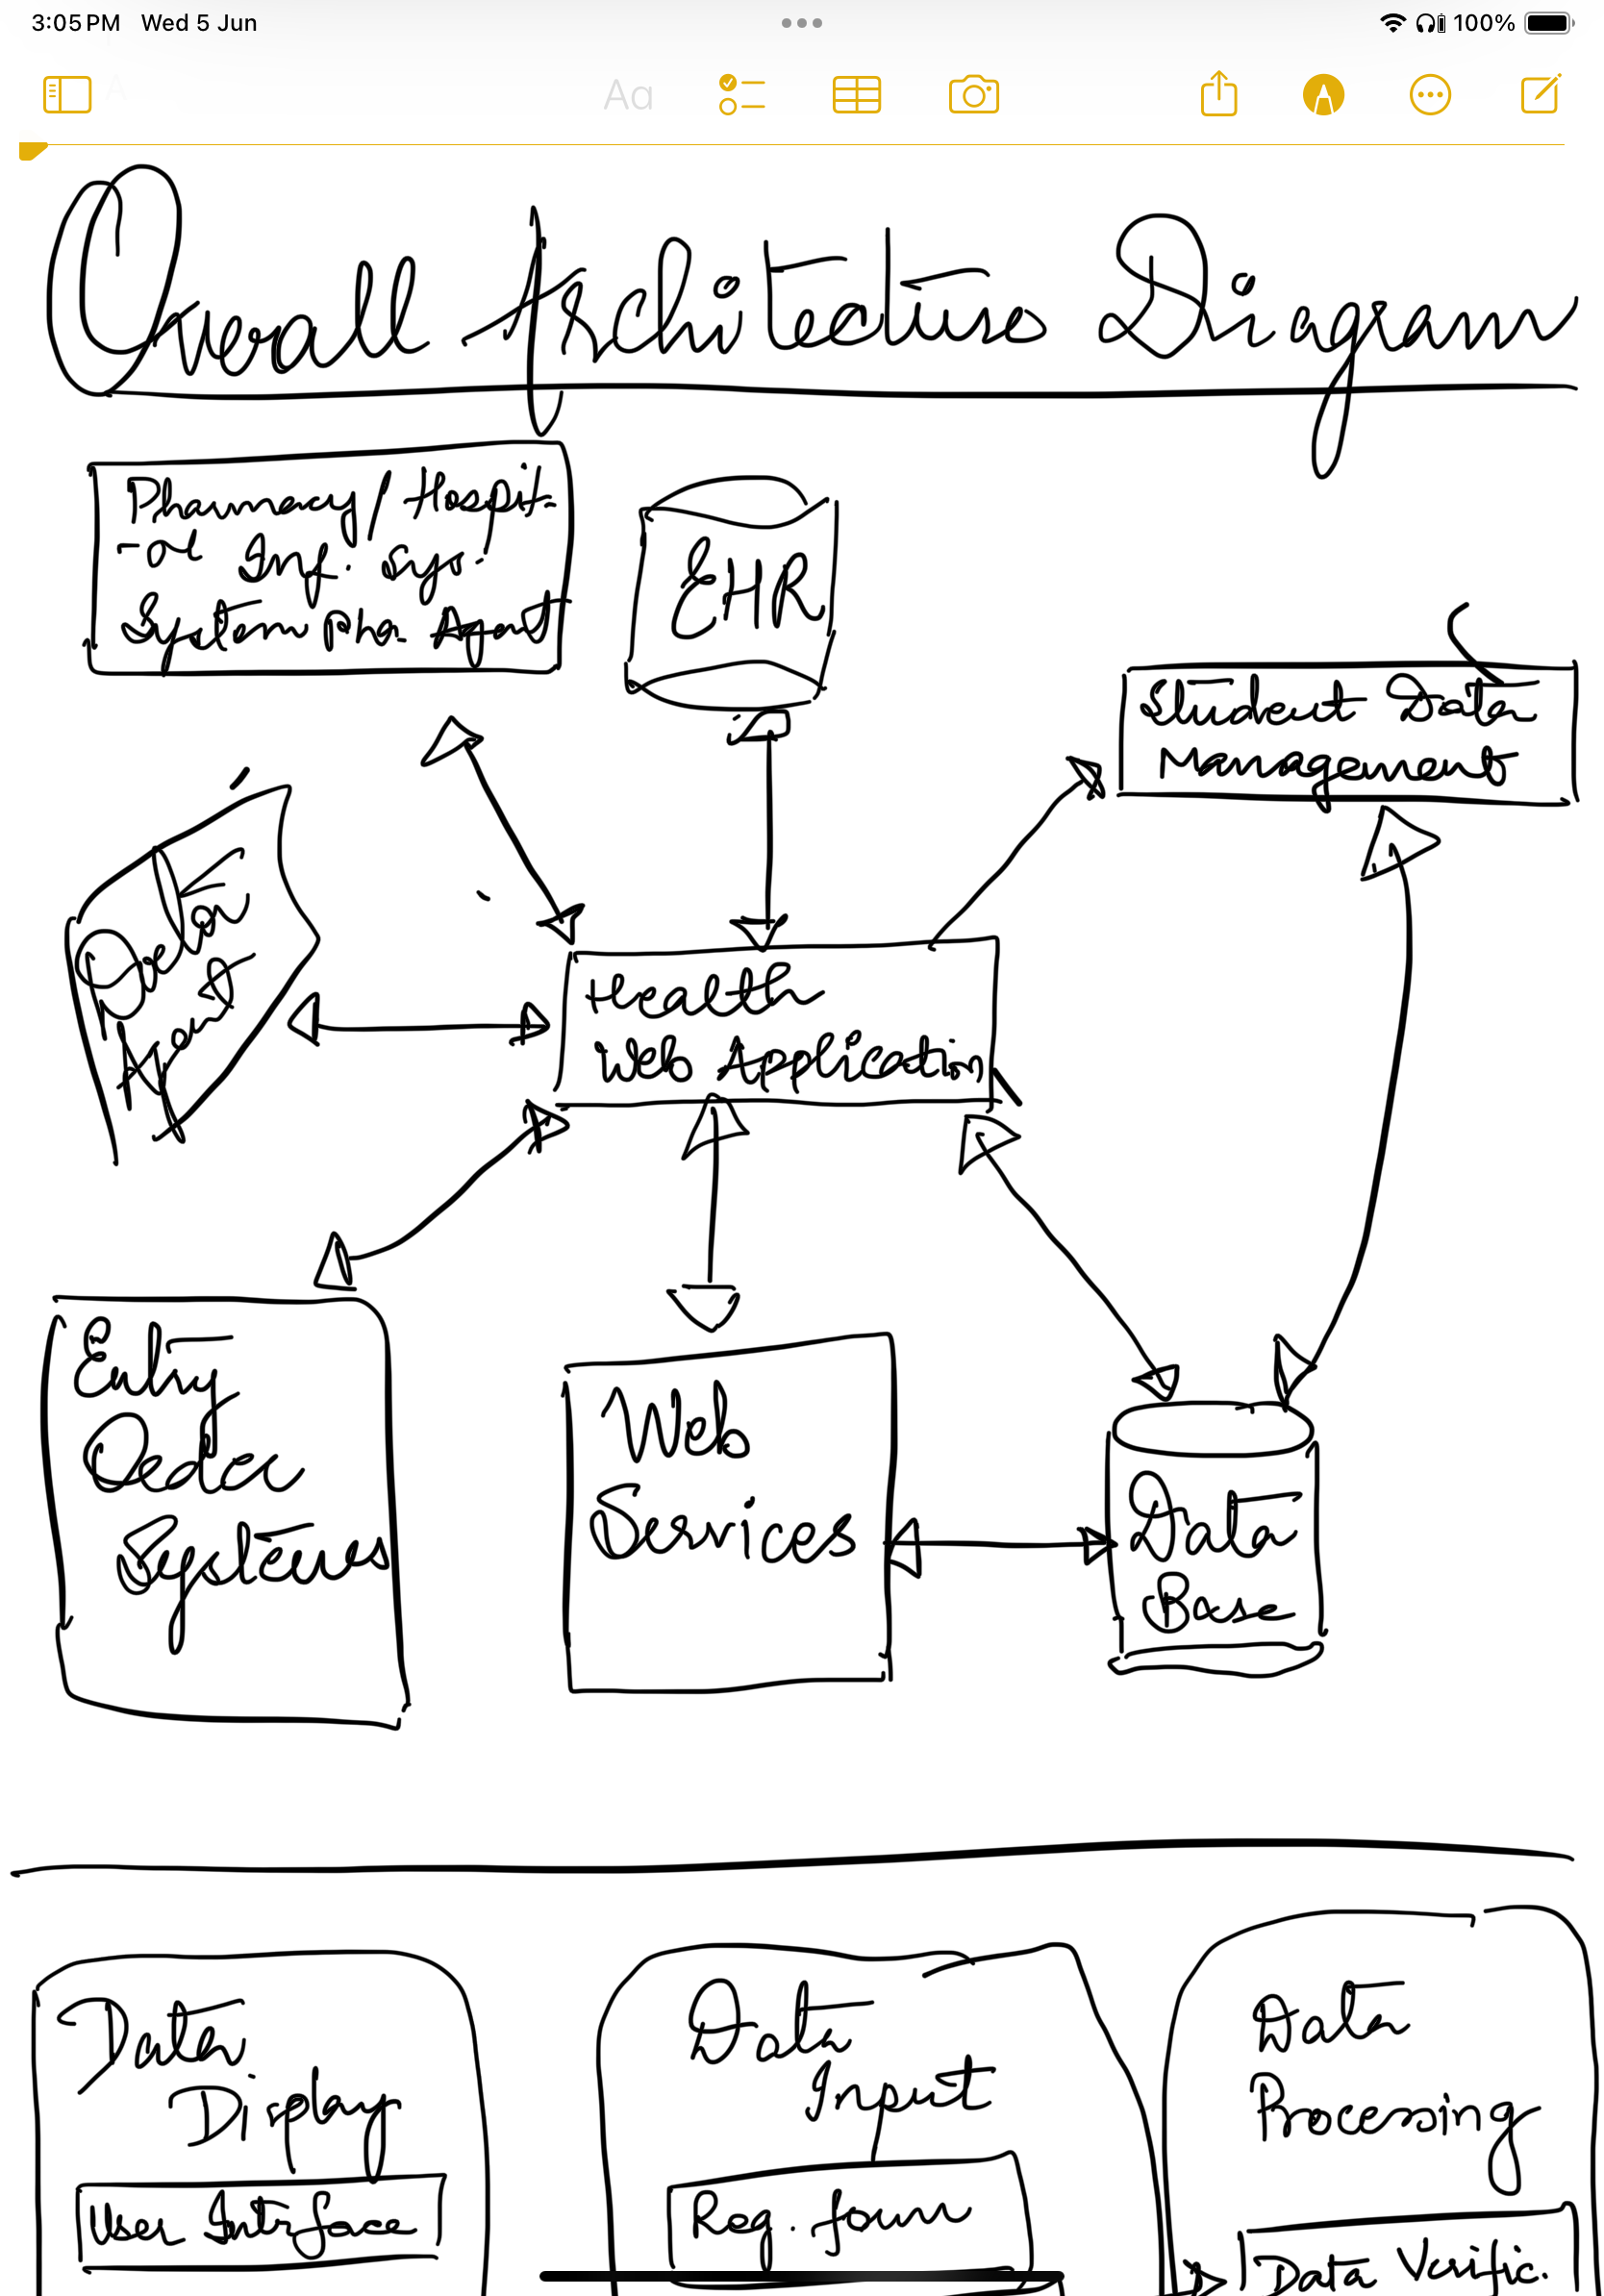 3:05 PM Wed 5 Jun
100%
Aa
Overall Architecture Diagram
Pharmacy/Hospit-
-al Inf. sys.
System pha. Agent
EHR
Student Data
Management
Data
Agent
Health
Web Application
Entry
Order
Systems
Web
Services
Data
Base
Data
Display
User Interface
Data
Input
Reg. form
Data
Processing
Data Verific.